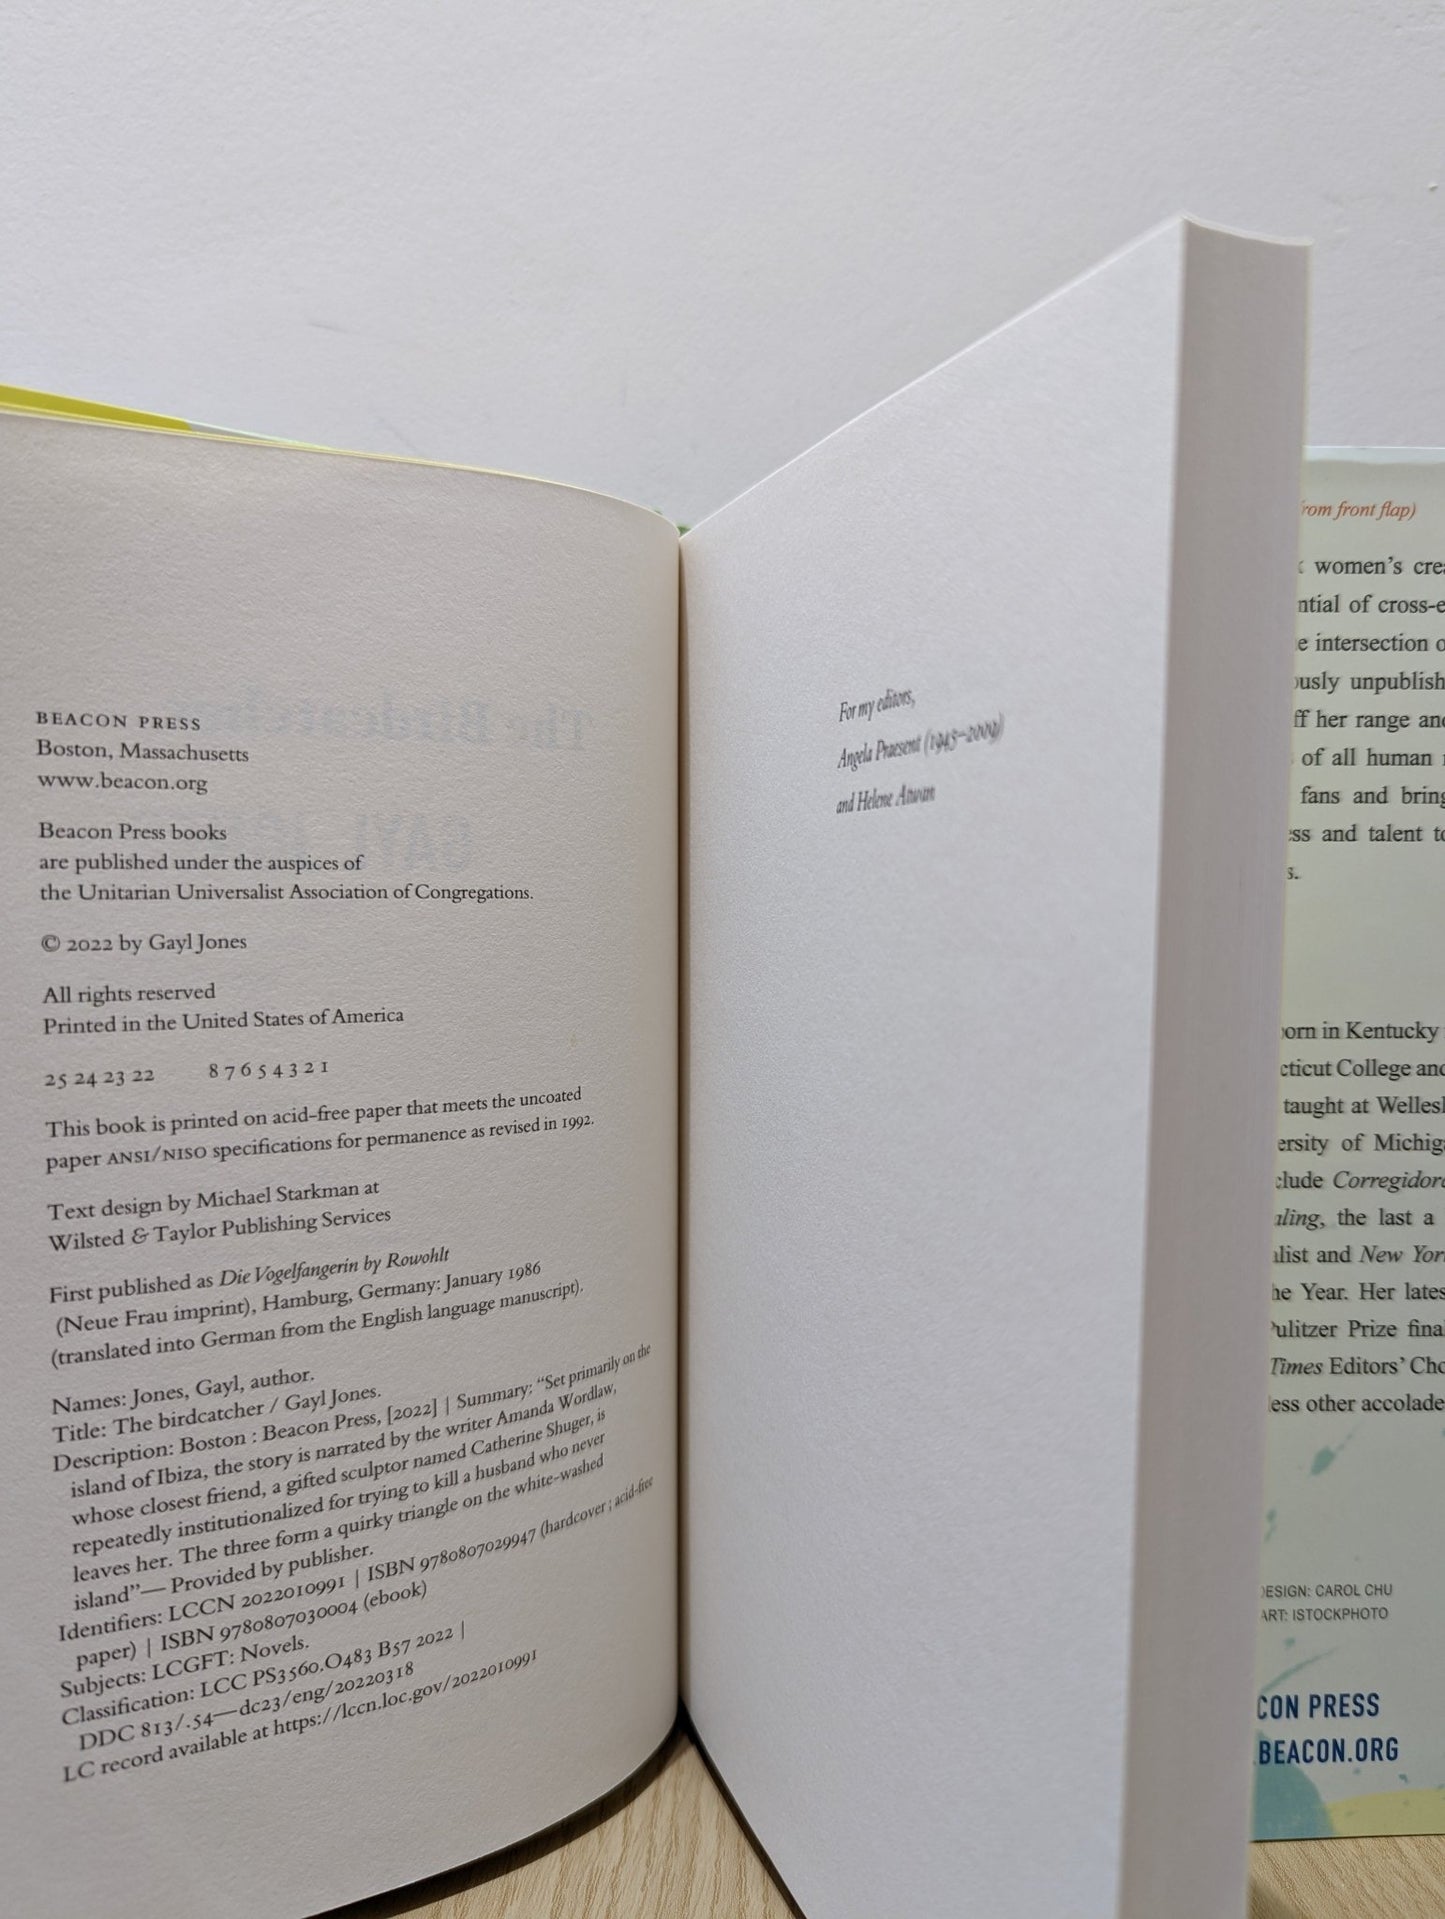 BEACON PRESS
Boston, Massachusetts
www.beacon.org
Beacon Press books
are published under the auspices of
the Unitarian Universalist Association of Congregations.
© 2022 by Gayl Jones
All rights reserved
Printed in the United States of America
25 24 23 22 8 7 6 5 4 3 2 1
This book is printed on acid-free paper that meets the uncoated
paper ANSI/NISO specifications for permanence as revised in 1992.
Text design by Michael Starkman at
Wilsted & Taylor Publishing Services
First published as Die Vogelfangerin by Rowohlt
(Neue Frau imprint), Hamburg, Germany: January 1986
(translated into German from the English language manuscript).
Names: Jones, Gayl, author.
Title: The birdcatcher / Gayl Jones.
Description: Boston : Beacon Press, [2022] | Summary: “Set primarily on the
island of Ibiza, the story is narrated by the writer Amanda Wordlaw,
whose closest friend, a gifted sculptor named Catherine Shuger, is
repeatedly institutionalized for trying to kill a husband who never
leaves her. The three form a quirky triangle on the white-washed
island”— Provided by publisher.
Identifiers: LCCN 2022010991 | ISBN 9780807029947 (hardcover ; acid-free
paper) | ISBN 9780807030004 (ebook)
Subjects: LCGFT: Novels.
Classification: LCC PS3560.O483 B57 2022 |
DDC 813/.54—dc23/eng/20220318
LC record available at https://lccn.loc.gov/2022010991
For my editors,
Angela Praesent (1945–2009)
and Helene Atwan
rom front flap)
women’s crea
ntial of cross-e
e intersection o
ously unpublish
ff her range and
of all human
fans and bring
ess and talent to
s.
orn in Kentucky
cticut College and
taught at Wellesl
ersity of Michiga
clude Corregidora
aling, the last a
alist and New York
he Year. Her lates
Pulitzer Prize final
Times Editors’ Cho
less other accolade
DESIGN: CAROL CHU
ART: ISTOCKPHOTO
CON PRESS
.BEACON.ORG